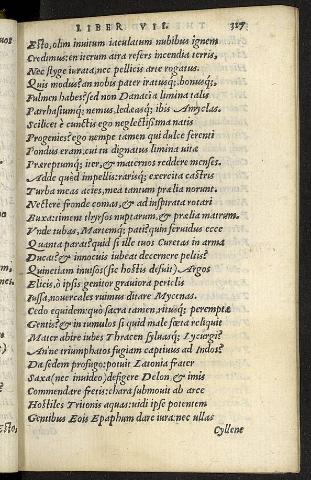 LIBER VII. 327
Esto, olim inuitum iaculatum nubibus ignem
Credimus: en iterum atra refers incendia terris,
Nec styge iurata, nec pellicis arte rogatus.
Quis modus? an nobis pater iratusq́; bonusq́;
Fulmen habes? sed non Danaëia limina talis
Parrhasiumq́; nemus, ledæasq́; ibis Amyclas.
Scilicet è cunctis ego neglectissima natis
Progenies? ego nempe tamen qui dulce ferenti
Pondus eram: cui tu dignatus limina uitæ
Præreptumq́; iter, & maternos reddere menses.
Adde quòd impellis: rarisq́; exercita castris
Turba meas acies, mea tantum prælia norunt.
Nectere fronde comas, & ad inspirata rotari
Buxa: timent thyrsos nuptarum, & prælia matrum.
Vnde tubas, Martemq́; pati? quin feruidus ecce
Quanta parat? quid si ille tuos Curetas in arma
Ducat? & innocuis iubeat decernere peltis?
Quinetiam inuisos (sic hostis defuit) Argos
Elicis, ô ipsis genitor grauiora periclis
Iussa, nouercales ruimus ditare Mycenas.
Cedo equidem: quò sacra tamen, ritusq́; peremptæ
Gentis? & in tumulos si quid male fœta reliquit
Mater abire iubes? Thracen syluasq́; Lycurgi?
An'ne triumphatos fugiam captiuus ad Indos?
Da sedem profugo: potuit Latonia frater
Saxa (nec inuideo) defigere Delon, & imis
Commendare fretis: chara submouit ab arce
Hostiles Tritonis aquas: uidi ipse potentem
Gentibus Eois Epaphum dare iura: nec ullas
Cyllene